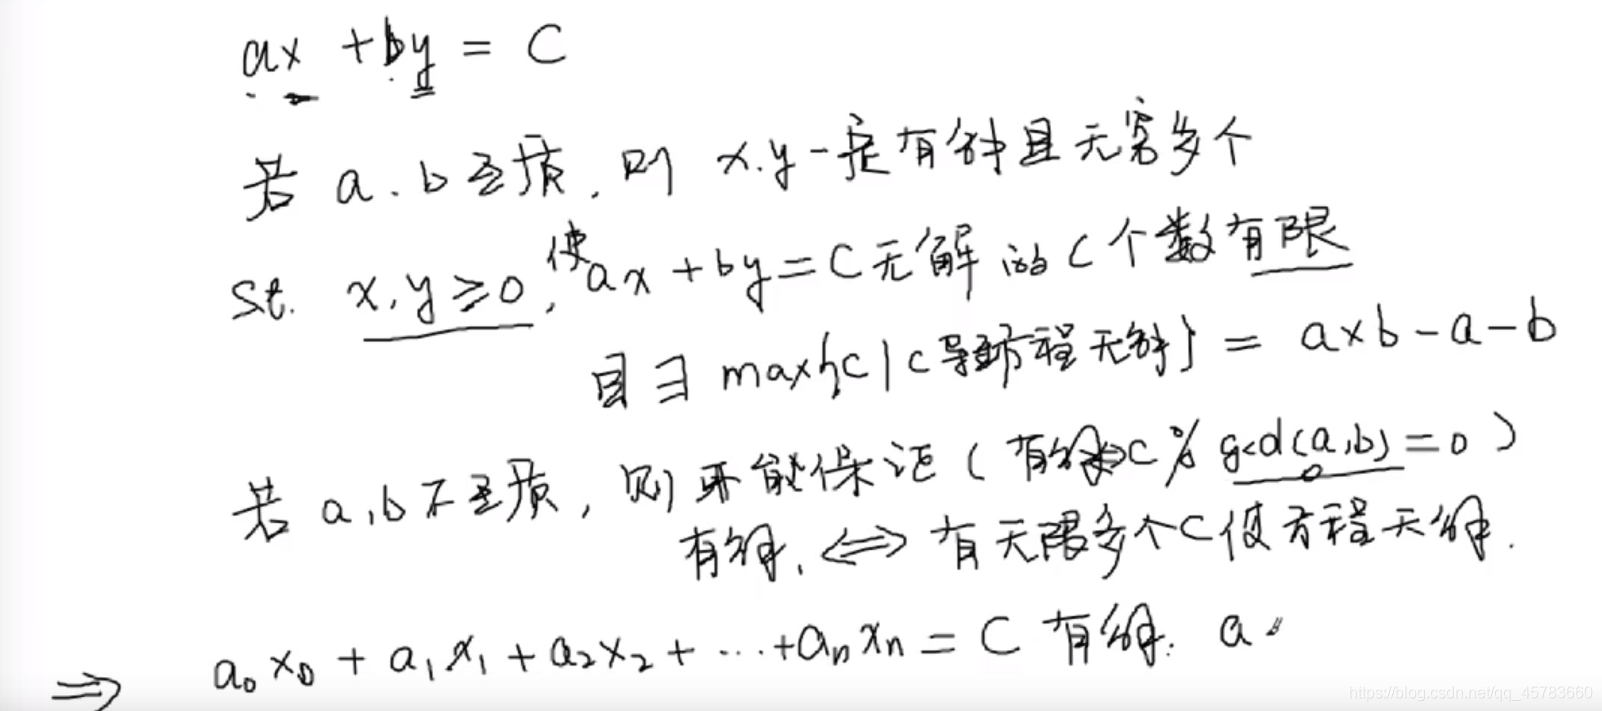 ax + by = C
若 a、b互质, 则 x.y一定有解且无穷多个
St. x,y≥0, 使ax + by = C无解的C个数有限
且∃ max{c | c导致方程无解} = a×b-a-b
若 a,b不互质, 则不能保证 (有解⇔C % gcd(a,b) = 0 )
有解, ⇔ 有无限多个C使方程无解.
⇒ a₀x₀ + a₁x₁ + a₂x₂ + ... + aₙxₙ = C 有解: a
https://blog.csdn.net/qq_45783660